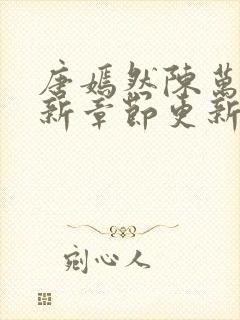 唐嫣然陳萬
新章節更新
剜心人